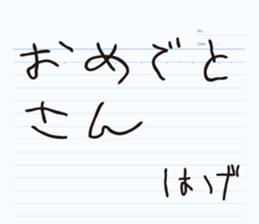 No.
Date
おめでと
さん
はげ